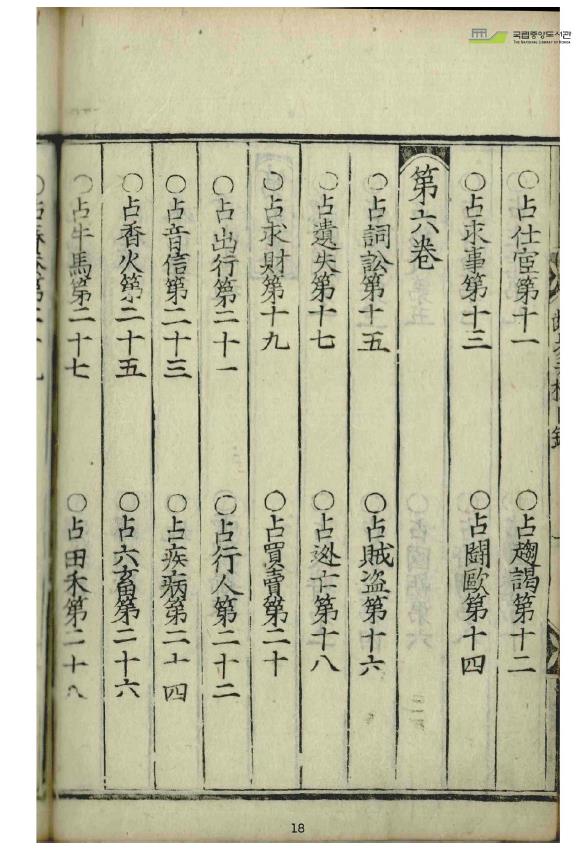 국립중앙도서관
THE NATIONAL LIBRARY OF KOREA
○占仕宦第十一
○占趨謁第十二
○占求事第十三
○占鬪歐第十四
第六卷
○占詞訟第十五
○占賊盗第十六
○占遺失第十七
○占迯亡第十八
○占求財第十九
○占買賣第二十
○占出行第二十一
○占行人第二十二
○占音信第二十三
○占疾病第二十四
○占香火第二十五
○占六畜第二十六
○占牛馬第二十七
○占田禾第二十八
18